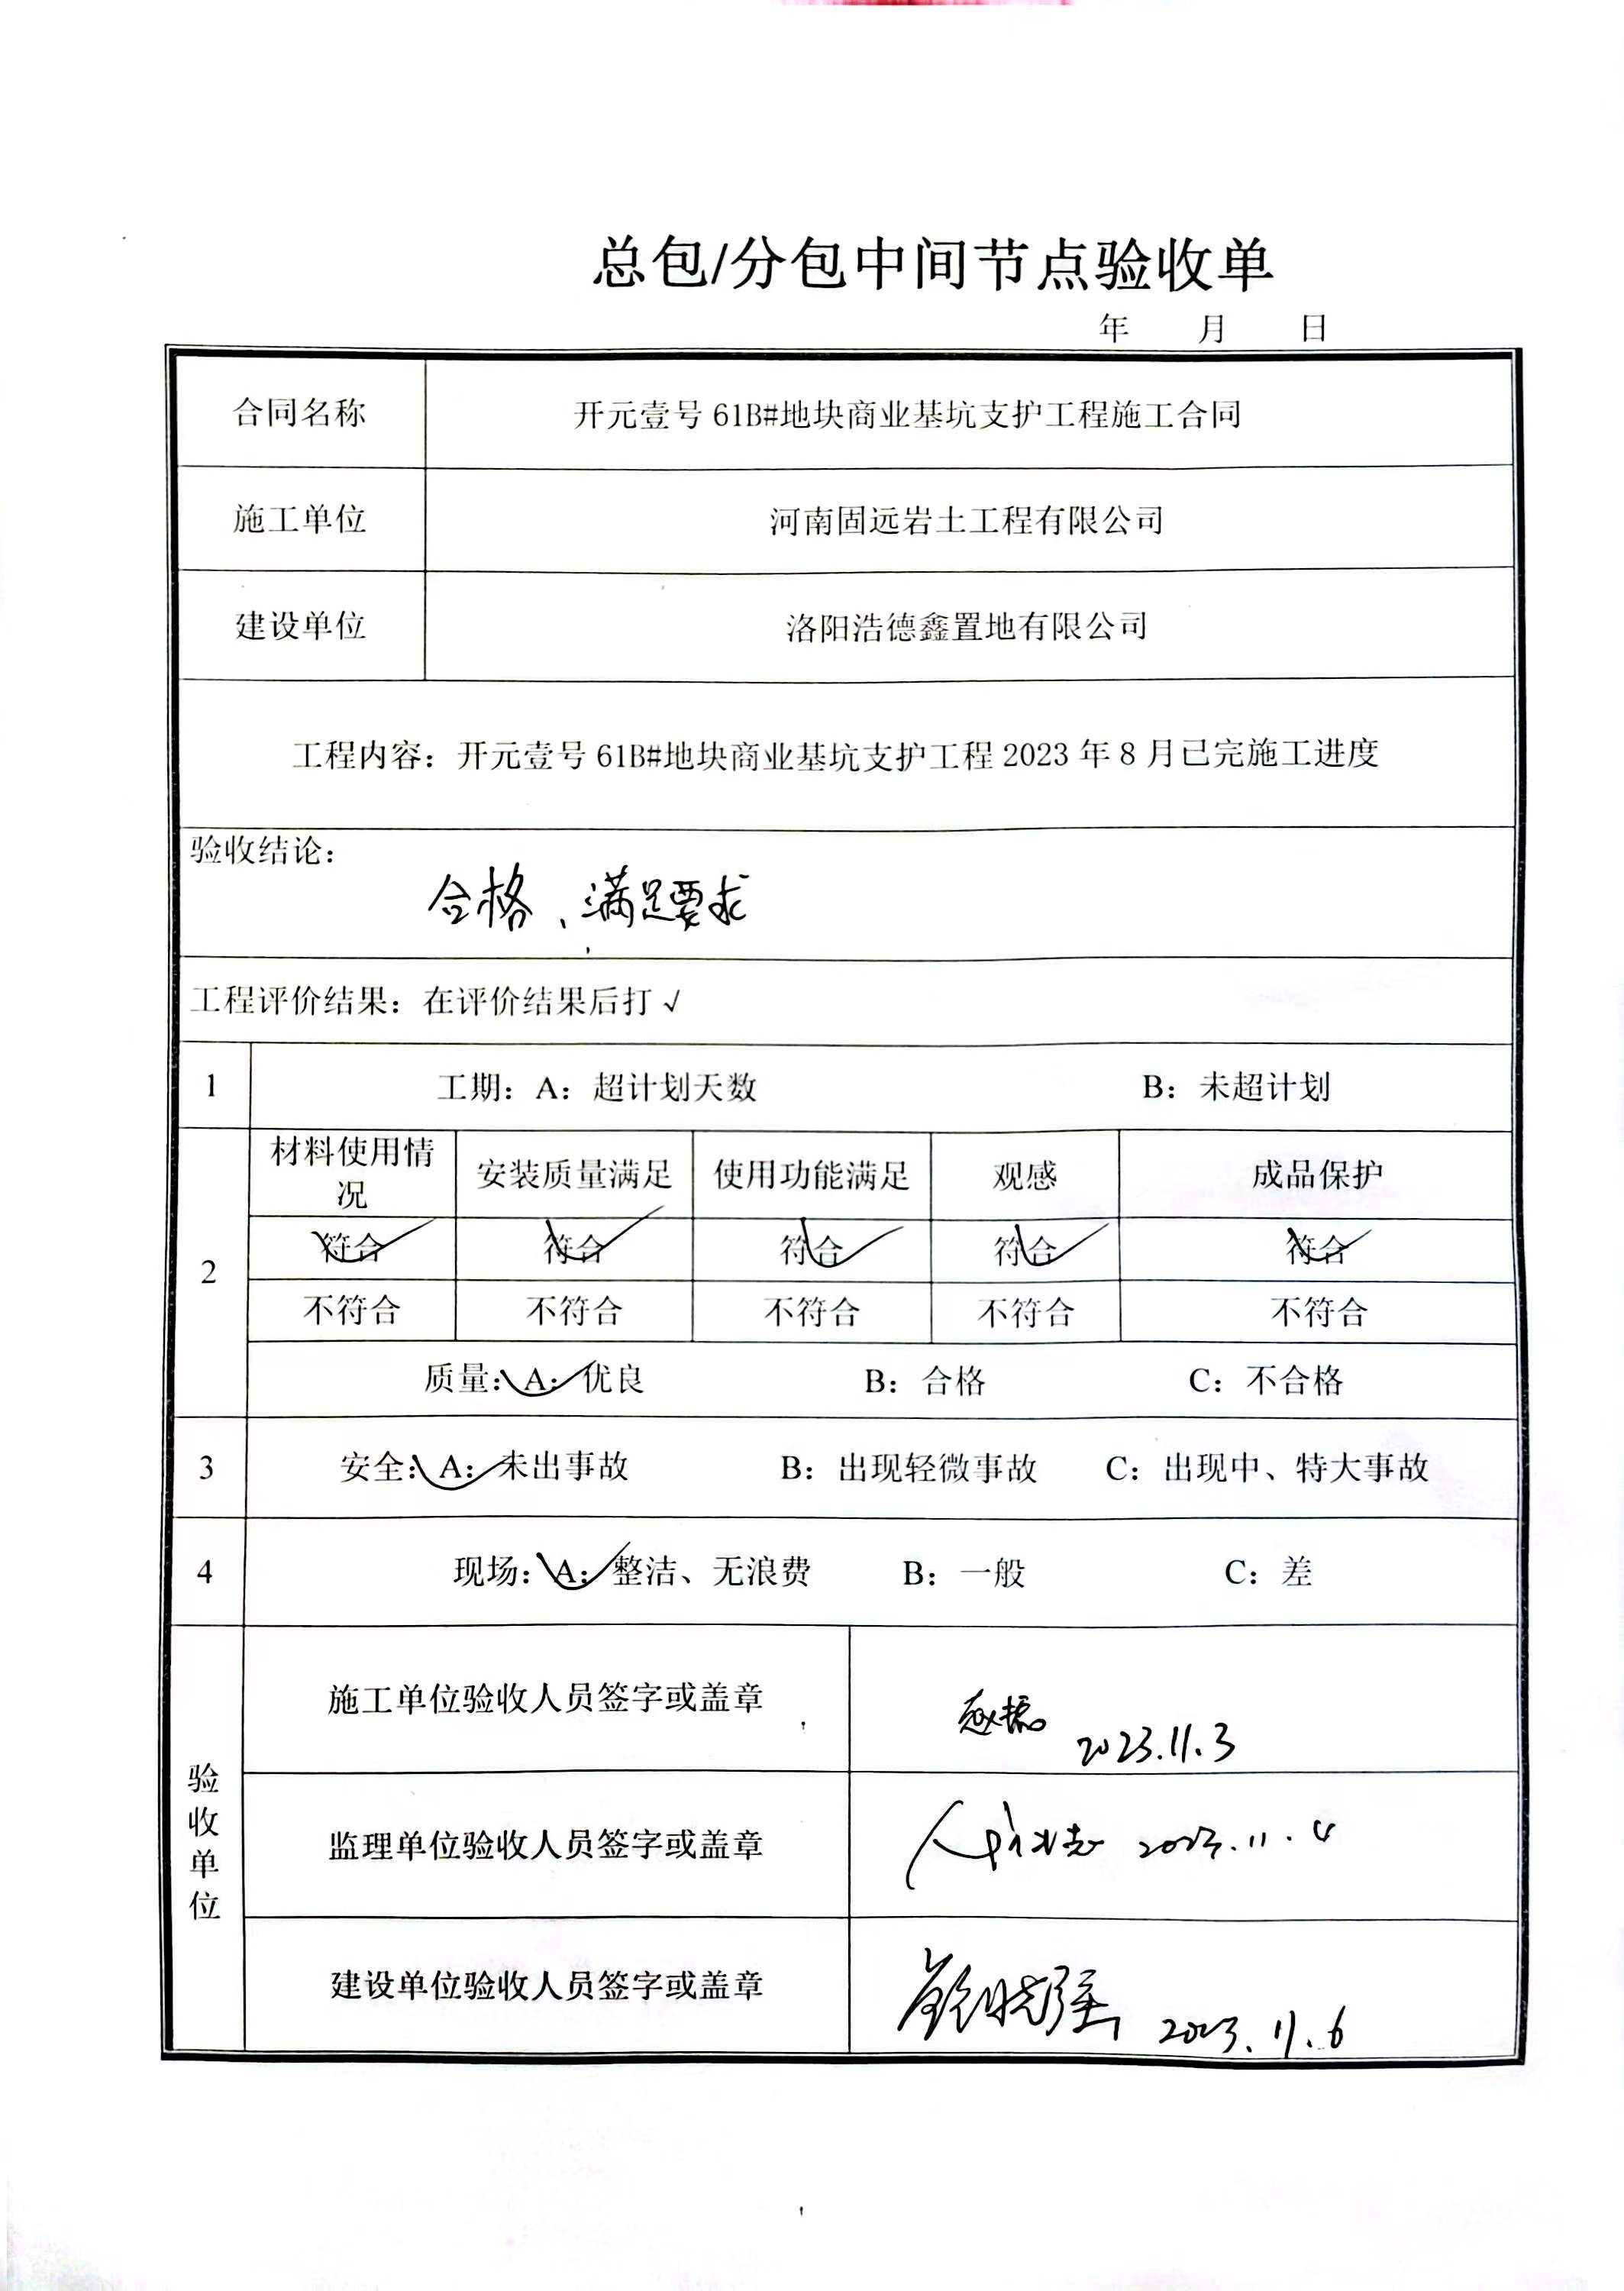 总包/分包中间节点验收单
年 月 日
合同名称 开元壹号 61B#地块商业基坑支护工程施工合同
施工单位 河南固远岩土工程有限公司
建设单位 洛阳浩德鑫置地有限公司
工程内容：开元壹号 61B#地块商业基坑支护工程 2023 年 8 月已完施工进度
验收结论：
合格、满足要求
工程评价结果：在评价结果后打√
1 工期：A：超计划天数 B：未超计划
材料使用情况 安装质量满足 使用功能满足 观感 成品保护
2
符合 符合 符合 符合 符合
不符合 不符合 不符合 不符合 不符合
质量：A：优良 B：合格 C：不合格
3 安全：A：未出事故 B：出现轻微事故 C：出现中、特大事故
4 现场：A：整洁、无浪费 B：一般 C：差
验收单位
施工单位验收人员签字或盖章 2023.11.3
监理单位验收人员签字或盖章 2023.11.4
建设单位验收人员签字或盖章 2023.11.6